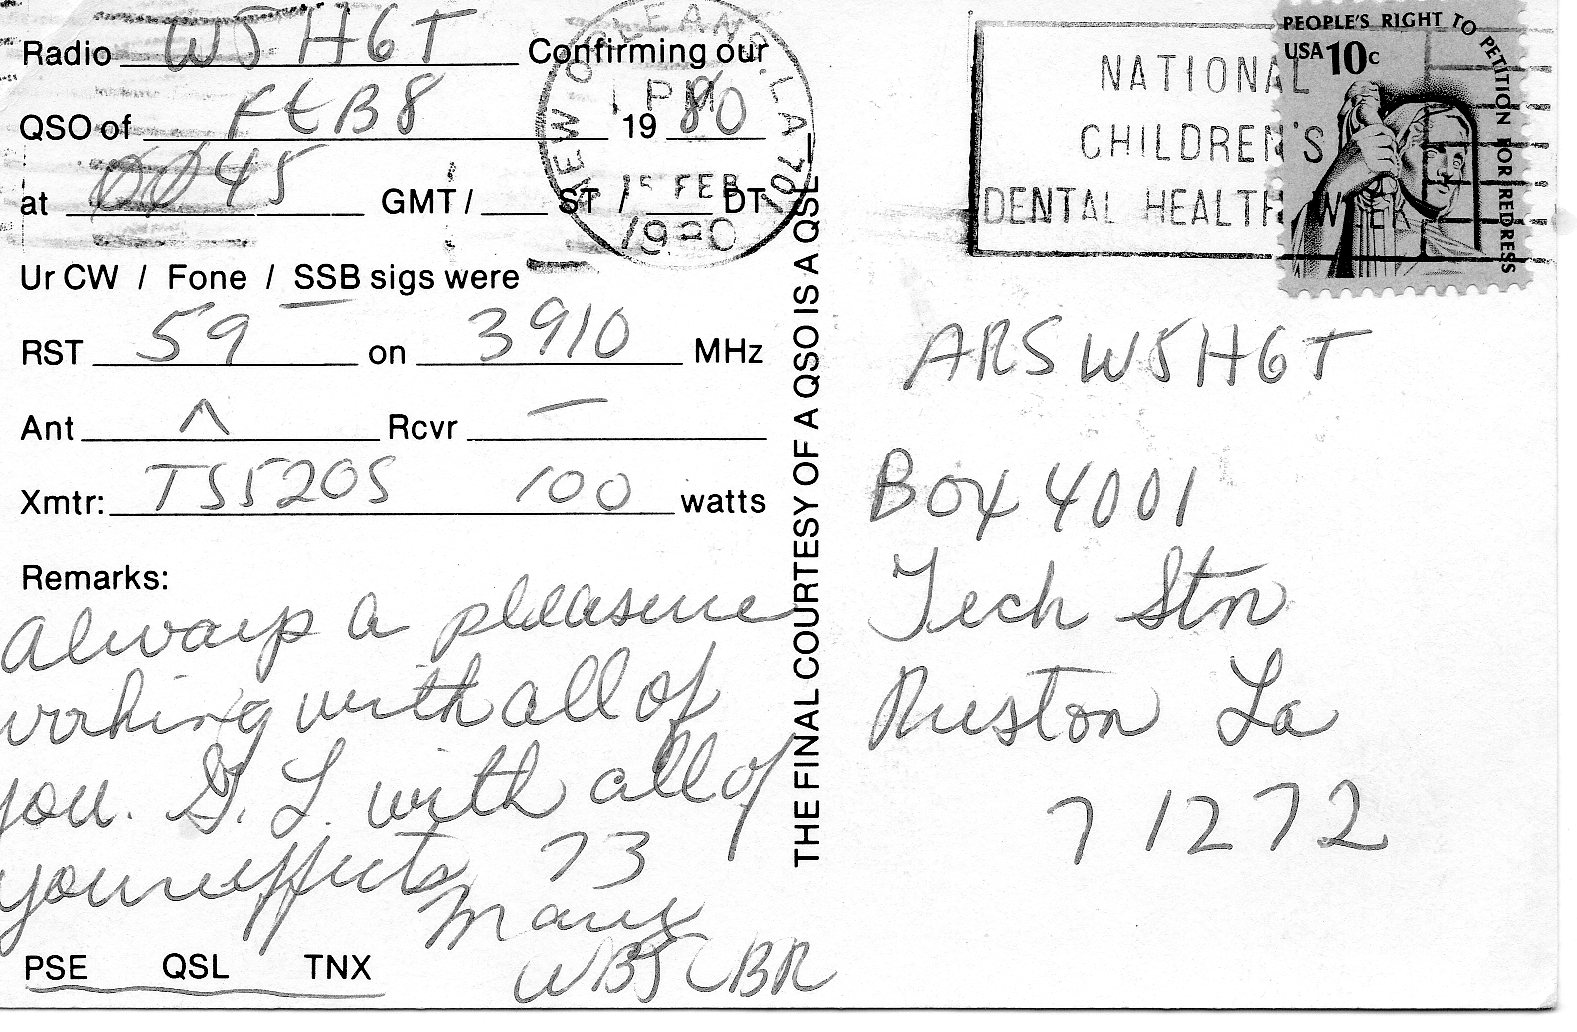 Radio W5HGT Confirming our
QSO of FEB 8 19 80
at 0045 GMT / ___ ST / ___ DT
Ur CW / Fone / SSB sigs were
RST 59 on 3910 MHz
Ant ^ Rcvr —
Xmtr: TS520S 100 watts
Remarks:
Always a pleasure
working with all of
you. G. L. with all of
your effects 73
WB5CBR
PSE QSL TNX
THE FINAL COURTESY OF A QSO IS A QSL
NEW ORLEANS, LA 701
PM
15 FEB
1980
NATIONAL
CHILDREN'S
DENTAL HEALTH WEEK
PEOPLE'S RIGHT TO PETITION FOR REDRESS
USA 10c
ARS W5HGT
Box 4001
Tech Stn
Ruston La
71272